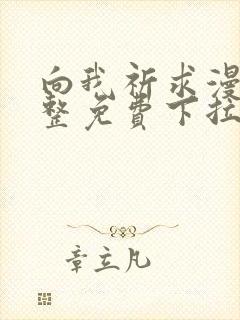 向我祈求漫
整免费下拉
章立凡